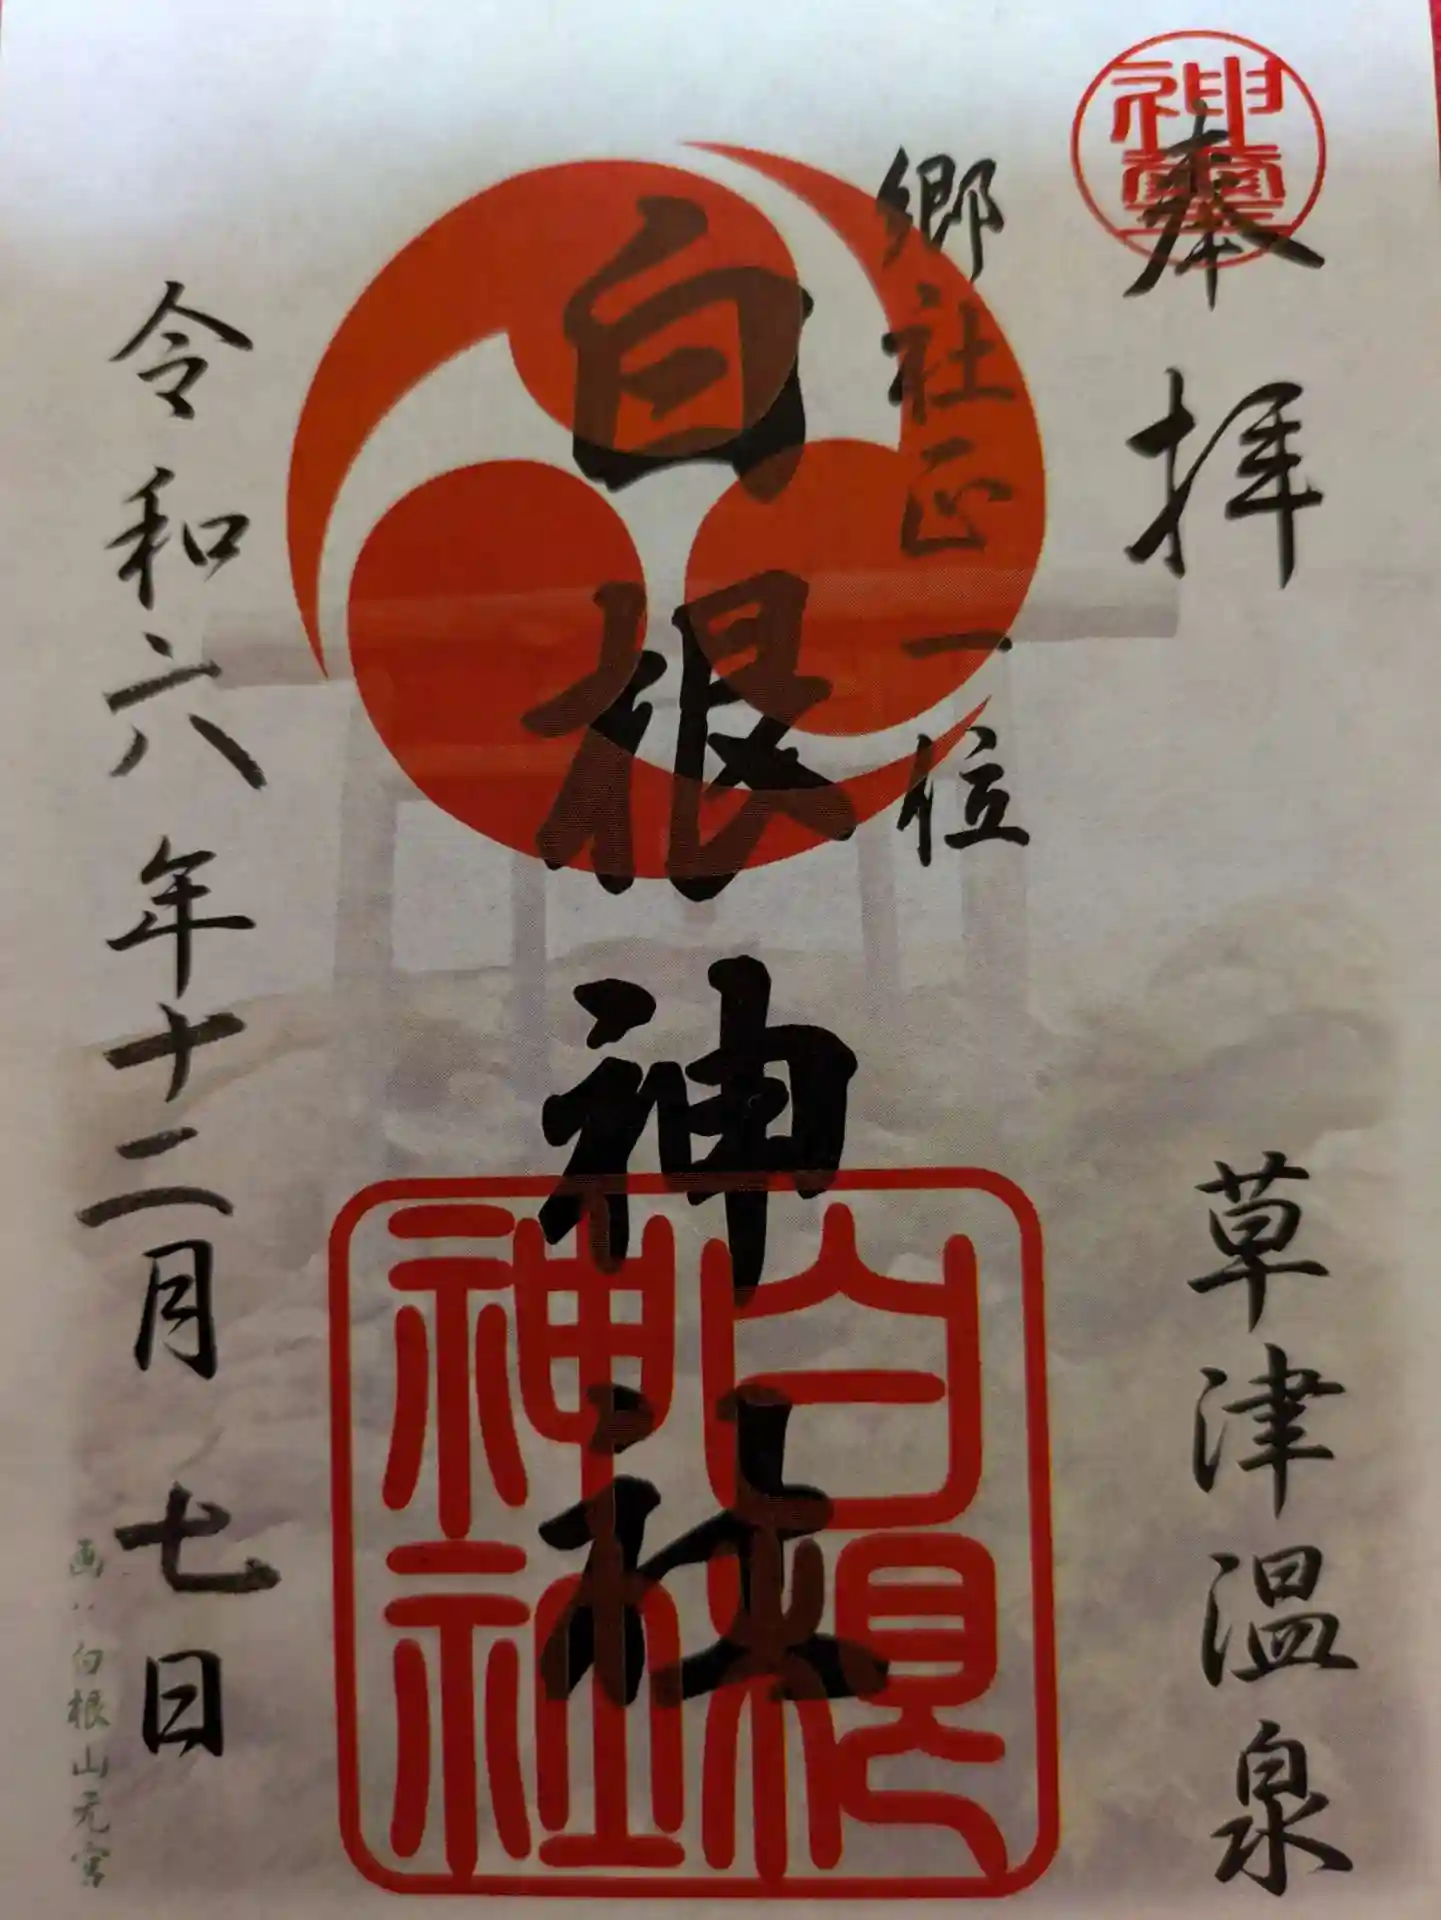 奉拝
草津温泉
郷社正一位
白根神社
白根神社
令和六年十二月七日
画‥白根山元宮